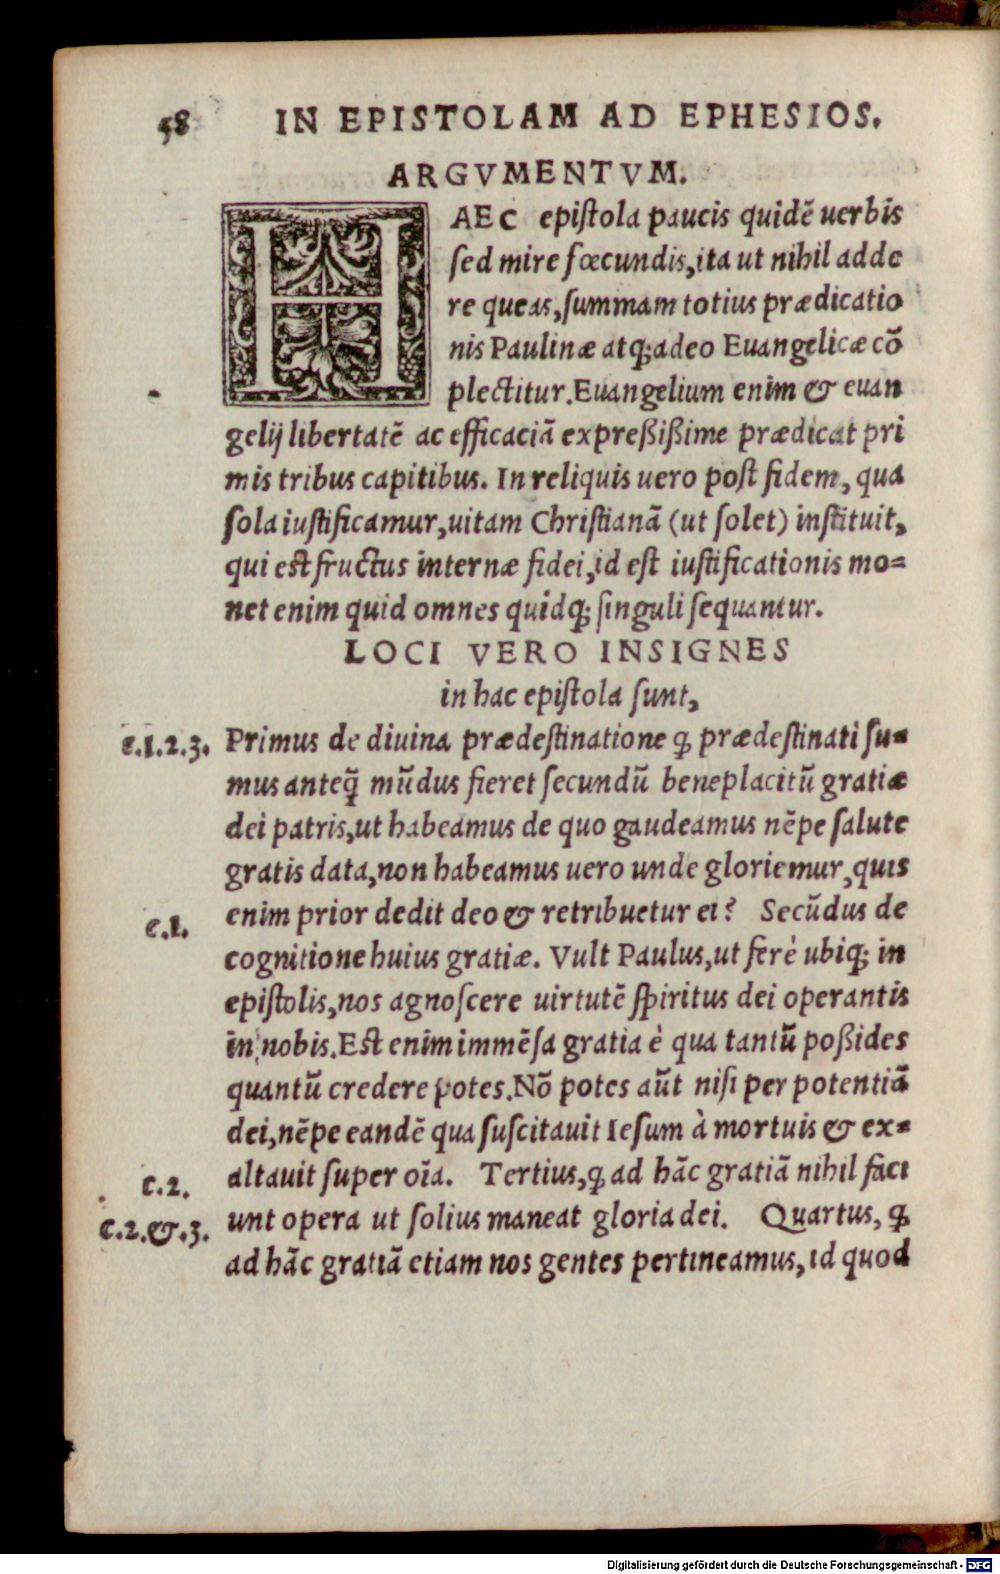 58 IN EPISTOLAM AD EPHESIOS.
ARGVMENTVM.
HAEC epiſtola paucis quidē uerbis
ſed mire fœcundis, ita ut nihil adde
re queas, ſummam totius prædicatio
nis Paulinæ atq; adeo Euangelicæ cō
plectitur. Euangelium enim & euan
gelij libertatē ac efficaciā expreßißime prædicat pri
mis tribus capitibus. In reliquis uero poſt fidem, qua
ſola iuſtificamur, uitam Chriſtianā (ut ſolet) inſtituit,
qui est fructus internæ fidei, id eſt iuſtificationis mo=
net enim quid omnes quidq; ſinguli ſequantur.
LOCI VERO INSIGNES
in hac epiſtola ſunt,
C.1.2.3. Primus de diuina prædeſtinatione ꝙ prædeſtinati ſu=
mus anteq̃ mūdus fieret ſecundū beneplacitū gratiæ
dei patris, ut habeamus de quo gaudeamus nēpe ſalute
gratis data, non habeamus uero unde gloriemur, quis
enim prior dedit deo & retribuetur ei? Secūdus de
C.1. cognitione huius gratiæ. Vult Paulus, ut ferè ubiq; in
epiſtolis, nos agnoſcere uirtutē ſpiritus dei operantis
in nobis. Est enim immēſa gratia è qua tantū poßides
quantū credere potes. Nō potes aūt niſi per potentiā
dei, nēpe eandē qua ſuſcitauit Ieſum à mortuis & ex=
C.2. altauit ſuper oīa. Tertius, ꝙ ad hāc gratiā nihil faci
C.2.&.3. unt opera ut ſolius maneat gloria dei. Quartus, ꝙ
ad hāc gratiā etiam nos gentes pertineamus, id quod
Digitalisierung gefördert durch die Deutsche Forschungsgemeinschaft - DFG